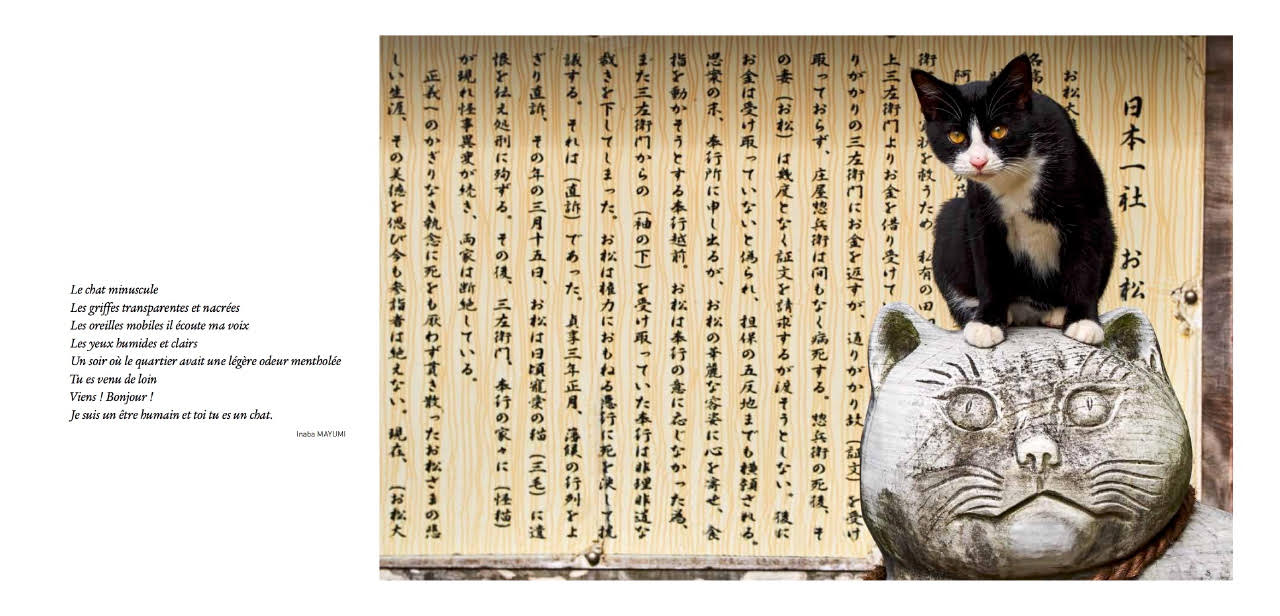 Le chat minuscule
Les griffes transparentes et nacrées
Les oreilles mobiles il écoute ma voix
Les yeux humides et clairs
Un soir où le quartier avait une légère odeur mentholée
Tu es venu de loin
Viens ! Bonjour !
Je suis un être humain et toi tu es un chat.
Inaba MAYUMI
日本一社 お松
お松大
阿
状を救うため、私有の田
上三左衛門よりお金を借り受けて
りがかりの三左衛門にお金を返すが、通りがかり故(証文)を受け
取っておらず、庄屋惣兵衛は間もなく病死する。惣兵衛の死後、そ
の妻(お松)は幾度となく証文を請求するが渡そうとしない。後に
お金は受け取っていないと偽られ、担保の五反地までも横領される。
思案の末、奉行所に申し出るが、お松の華麗な容姿に心を寄せ、食
指を動かそうとする奉行越前。お松は奉行の意に応じなかった為、
また三左衛門からの(袖の下)を受け取っていた奉行は非理非道な
裁きを下してしまった。お松は権力におもねる悪行に死を決して抗
議する。それは(直訴)であった。貞享三年正月、藩候の行列をよ
ぎり直訴。その年の三月十五日、お松は日頃寵愛の猫(三毛)に遺
恨を伝え処刑に殉ずる。その後、三左衛門、奉行の家々に(怪猫)
が現れ怪事異変が続き、両家は断絶している。
正義へのかぎりなき執念に死をも厭わず貫き散ったお松さまの悲
しい生涯、その美徳を偲び今も参詣者は絶えない。現在、(お松大